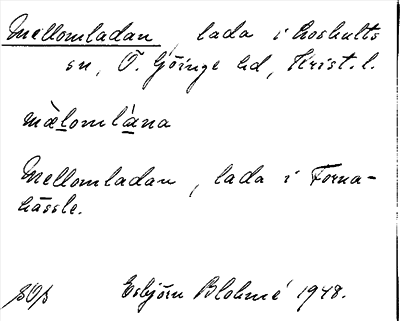 Mellomladan, lada i Loshults
sn, Ö. Göinge hd, Krist. l.
mèlomlána
Mellomladan, lada i Forna-
hässle.
Esbjörn Blohmé 1948.